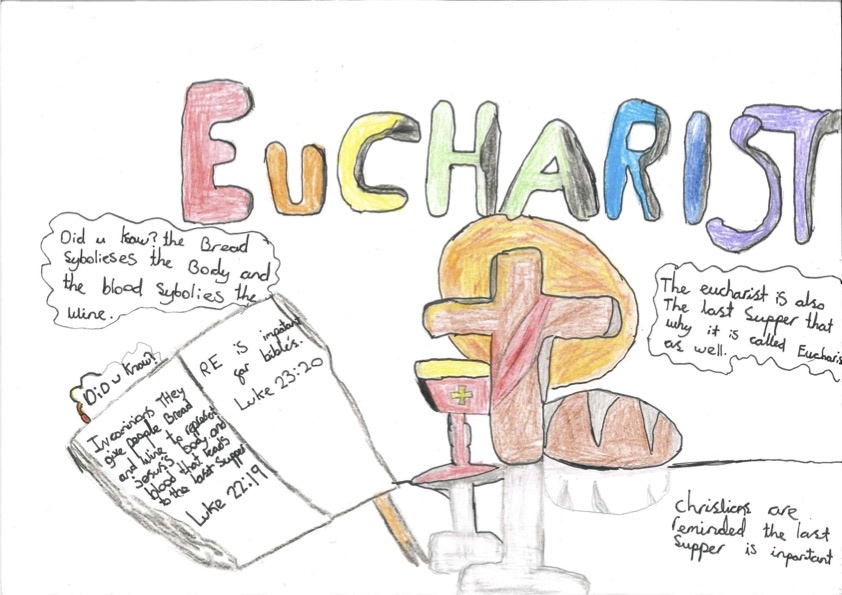 EuCHARIST
Did u know? the Bread
Sybolieses the Body and
the blood Sybolies the
wine.
The eucharist is also
The last Supper that
why it is called Eucharis
as well.
Did u know?
They
give people Bread
and wine to represent
Jesus's body and
blood that leads
to the last Supper
Luke 22:19
RE is impotant
for bibles.
Luke 23:20
Christians are
reminded the last
Supper is inportant